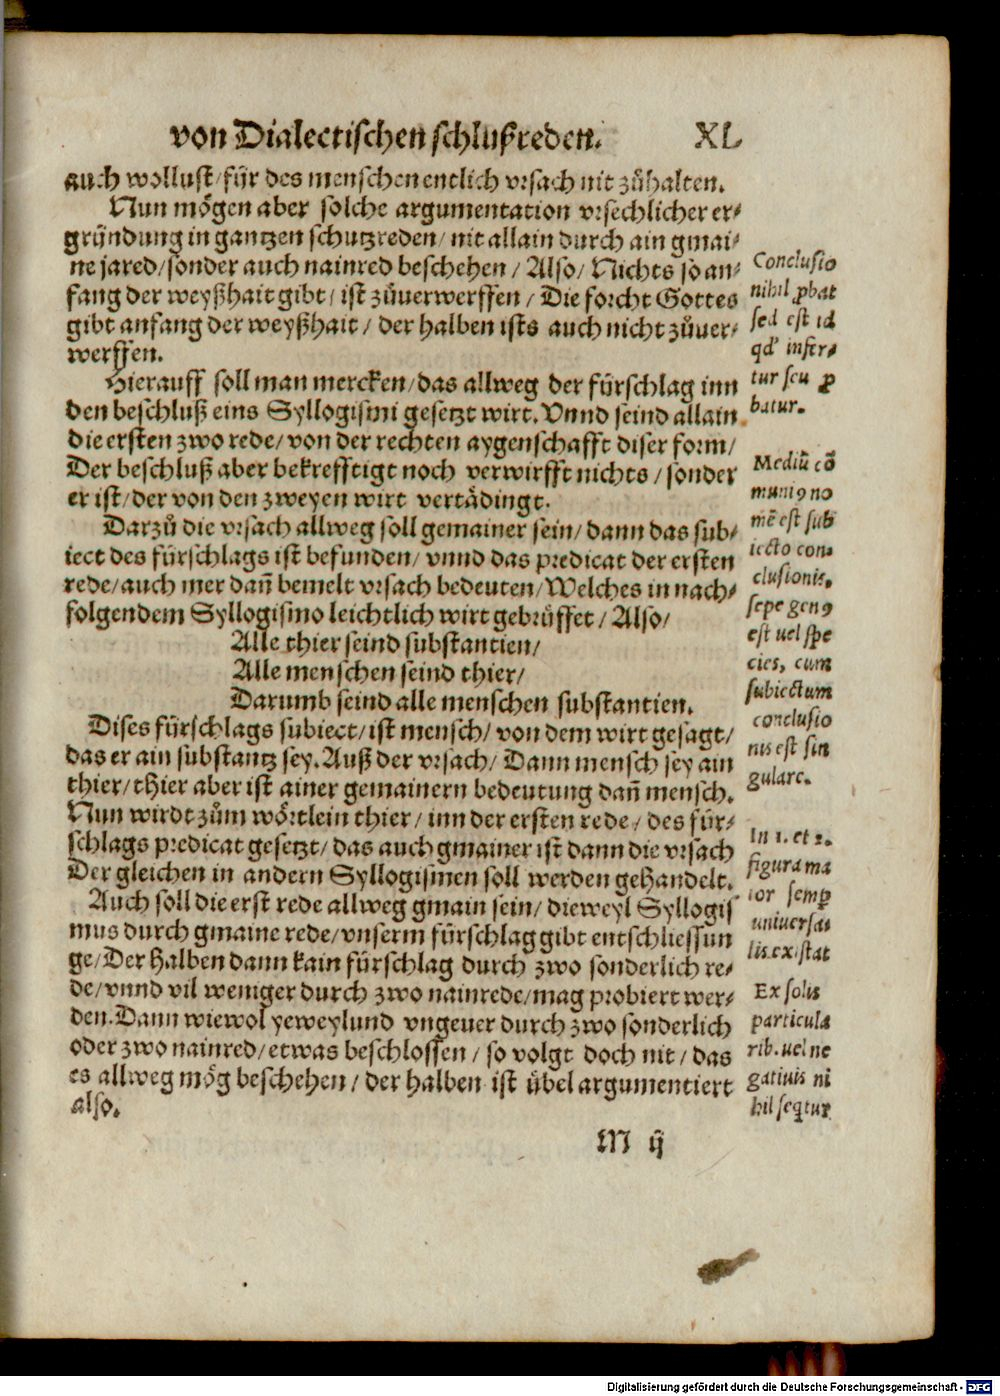 von Dialectischen schlußreden. XL
auch wollust/für des menschen entlich vrsach nit zůhalten.
Nun mögen aber solche argumentation vrsechlicher er⸗
gründung in gantzen schutzreden/ nit allain durch ain gmai⸗
ne jared/sonder auch nainred beschehen/ Also/ Nichts so an⸗
fang der weyßhait gibt/ ist zůuerwerffen/ Die forcht Gottes
gibt anfang der weyßhait/ der halben ists auch nicht zůuer⸗
werffen.
Hierauff soll man mercken/das allweg der fürschlag inn
den beschluß eins Syllogismi gesetzt wirt. Vnnd seind allain
die ersten zwo rede/von der rechten aygenschafft diser form/
Der beschluß aber bekrefftigt noch verwirfft nichts/sonder
er ist/der von den zweyen wirt vertädingt.
Darzů die vrsach allweg soll gemainer sein/ dann das sub⸗
iect des fürschlags ist befunden/ vnnd das predicat der ersten
rede/auch mer dañ bemelt vrsach bedeuten/Welches in nach⸗
folgendem Syllogismo leichtlich wirt gebrüffet/ Also/
Alle thier seind substantien/
Alle menschen seind thier/
Darumb seind alle menschen substantien.
Dises fürschlags subiect/ist mensch/von dem wirt gesagt/
das er ain substantz sey. Auß der vrsach/ Dann mensch sey ain
thier/thier aber ist ainer gemainern bedeutung dañ mensch.
Nun wirdt zům wörtlein thier/ inn der ersten rede/ des für⸗
schlags predicat gesetzt/das auch gmainer ist dann die vrsach
Der gleichen in andern Syllogismen soll werden gehandelt.
Auch soll die erst rede allweg gmain sein/ dieweyl Syllogis
mus durch gmaine rede/vnserm fürschlag gibt entschliessun
ge/Der halben dann kain fürschlag durch zwo sonderlich re⸗
de/vnnd vil weniger durch zwo nainrede/mag probiert wer⸗
den. Dann wiewol yeweylund vngeuer durch zwo sonderlich
oder zwo nainred/etwas beschlossen/ so volgt doch nit/ das
es allweg mög beschehen/ der halben ist übel argumentiert
also.
M ij
Conclusio
nihil ꝓbat
sed est id
qd' infer⸗
tur seu ꝓ
batur.
Mediũ cõ
muniꝯ no
mẽ est sub
iecto con⸗
clusionis.
sepe genꝯ
est uel spe
cies, cum
subiectum
conclusio
nis est sin
gulare.
In 1. et 2.
figura ma
ior semp̱
uniuersa
lis existat
Ex solis
particula
rib. uel ne
gatiuis ni
hil seqtur
Digitalisierung gefördert durch die Deutsche Forschungsgemeinschaft - DFG